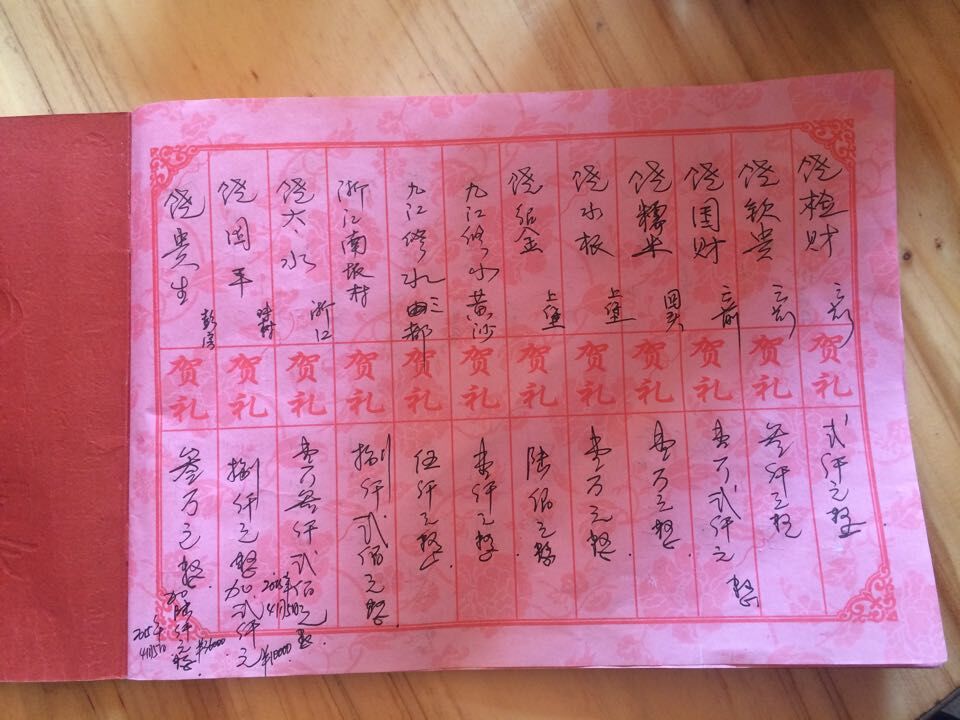 饶检财
贺礼
弍仟元整
饶钦贵
贺礼
叁仟元整
饶国财
贺礼
壹万弍仟元整
饶糯米
贺礼
壹万元整
饶水根 上堡
贺礼
壹万元整
饶绍金 上堡
贺礼
陆佰元整
九江修水黄沙
贺礼
壹仟元整
九江修水三都
贺礼
伍仟元整
浙江南坂村
贺礼
捌仟弍佰元整
饶太水 浙江
贺礼
壹万叁仟弍佰元整
饶国平
贺礼
捌仟元整加弍仟元
2015年4月5日
¥10000
饶贵生 彭家
贺礼
叁万元整
加陆仟元整
2015年4月5日
¥36000